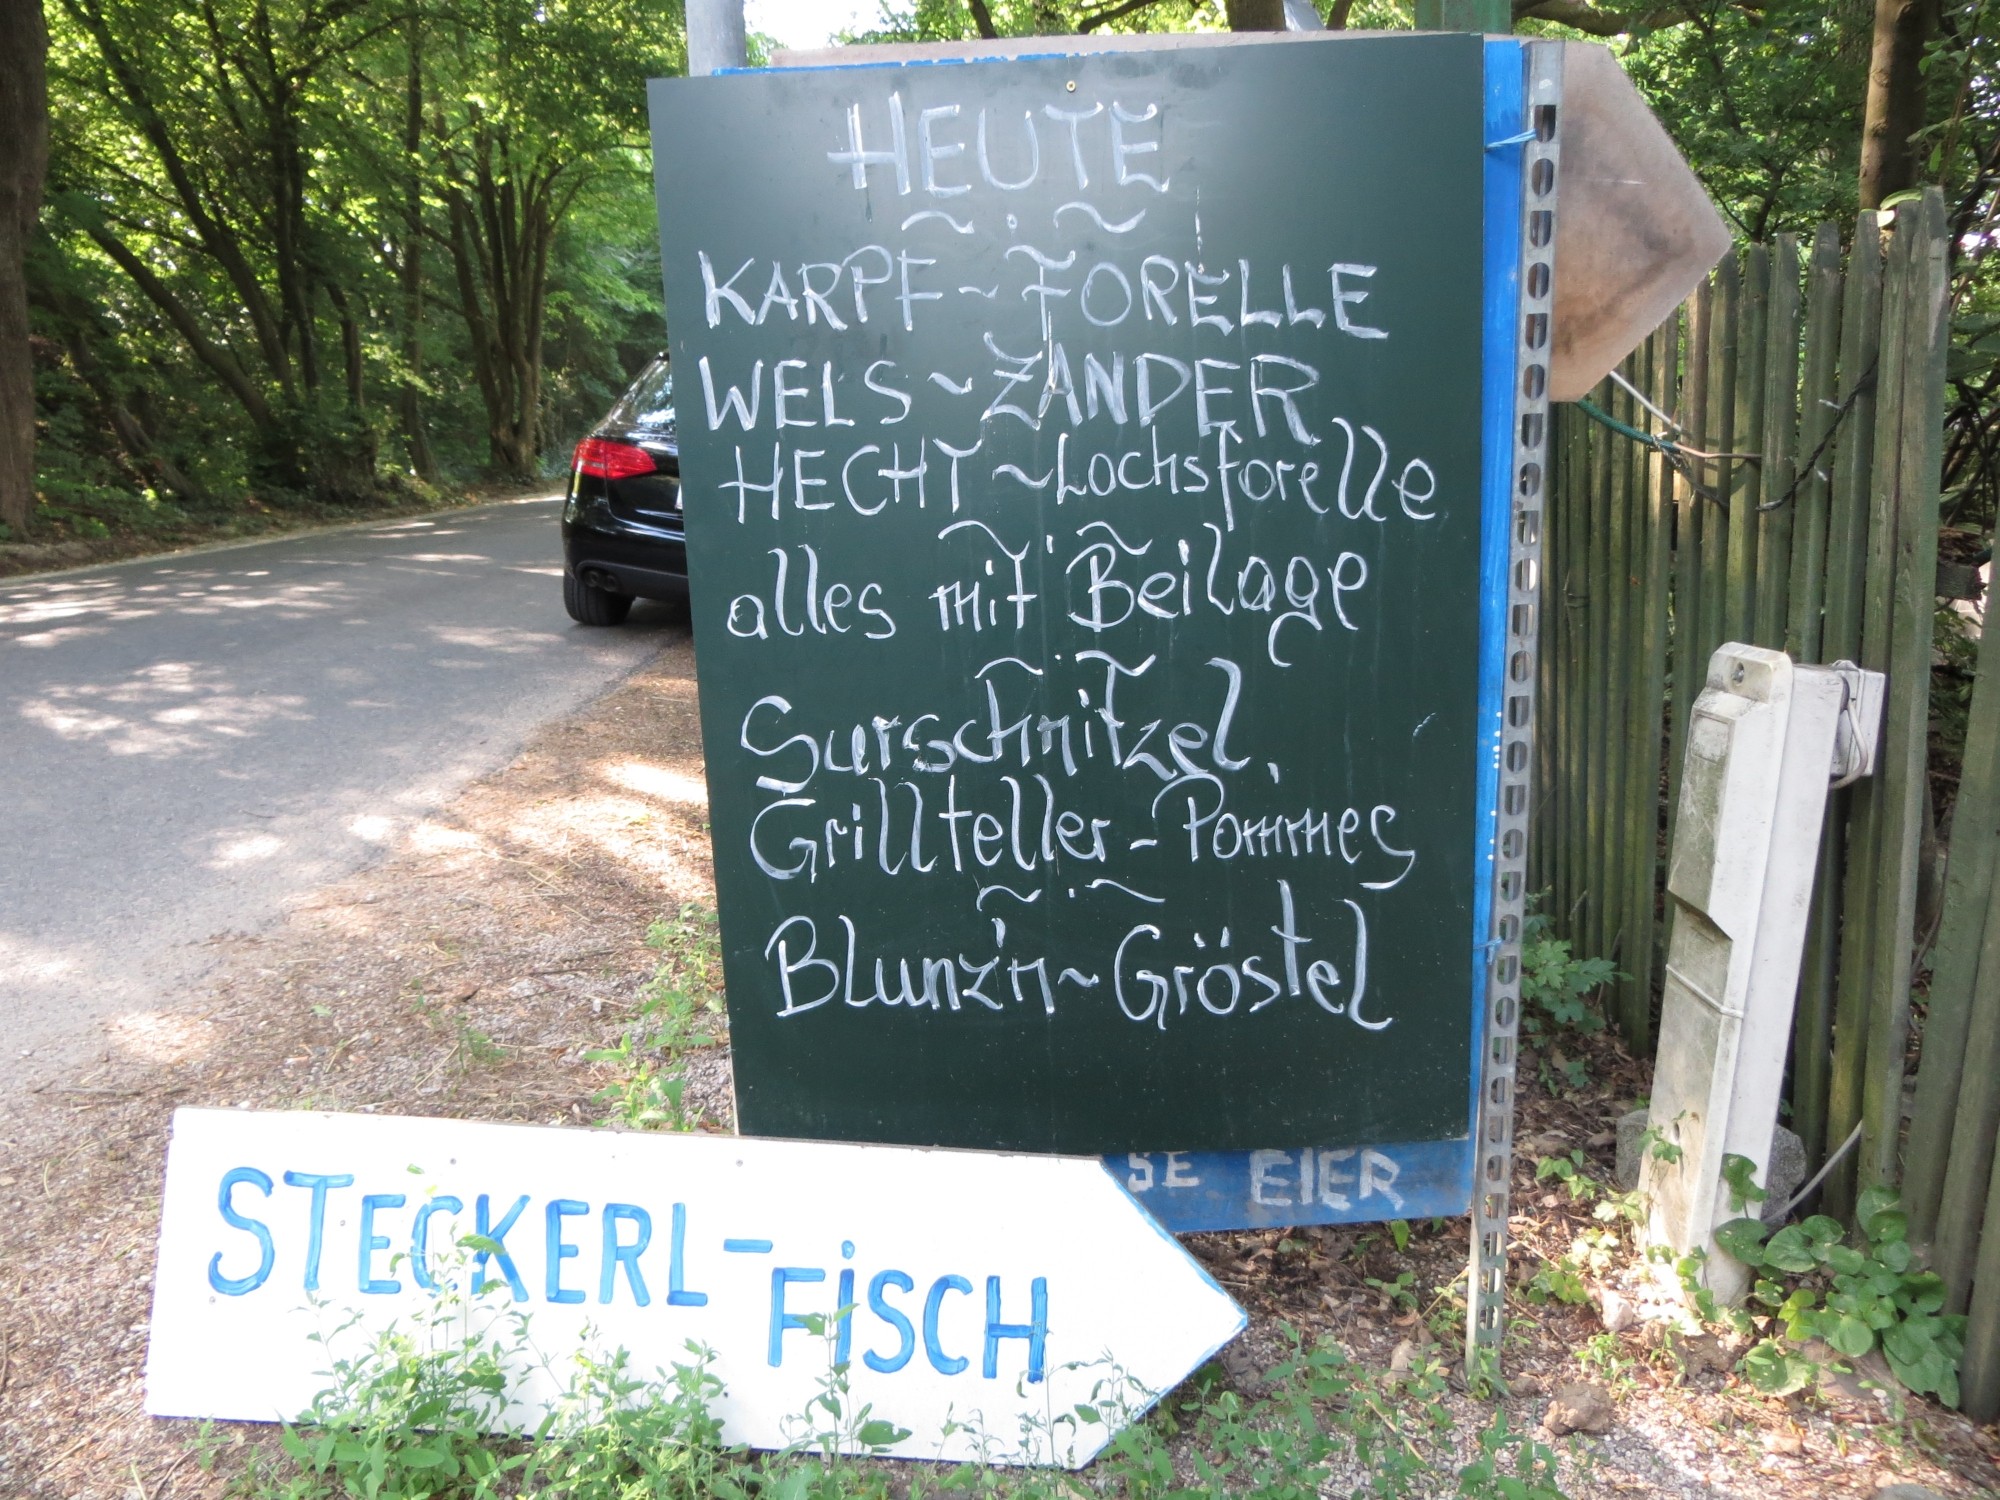 HEUTE
KARPF ~ FORELLE
WELS ~ ZANDER
HECHT ~ Lachsforelle
alles mit Beilage
Surschnitzel,
Grillteller - Pommes
Blunz'n ~ Gröstel
SE EIER
STECKERL-FISCH